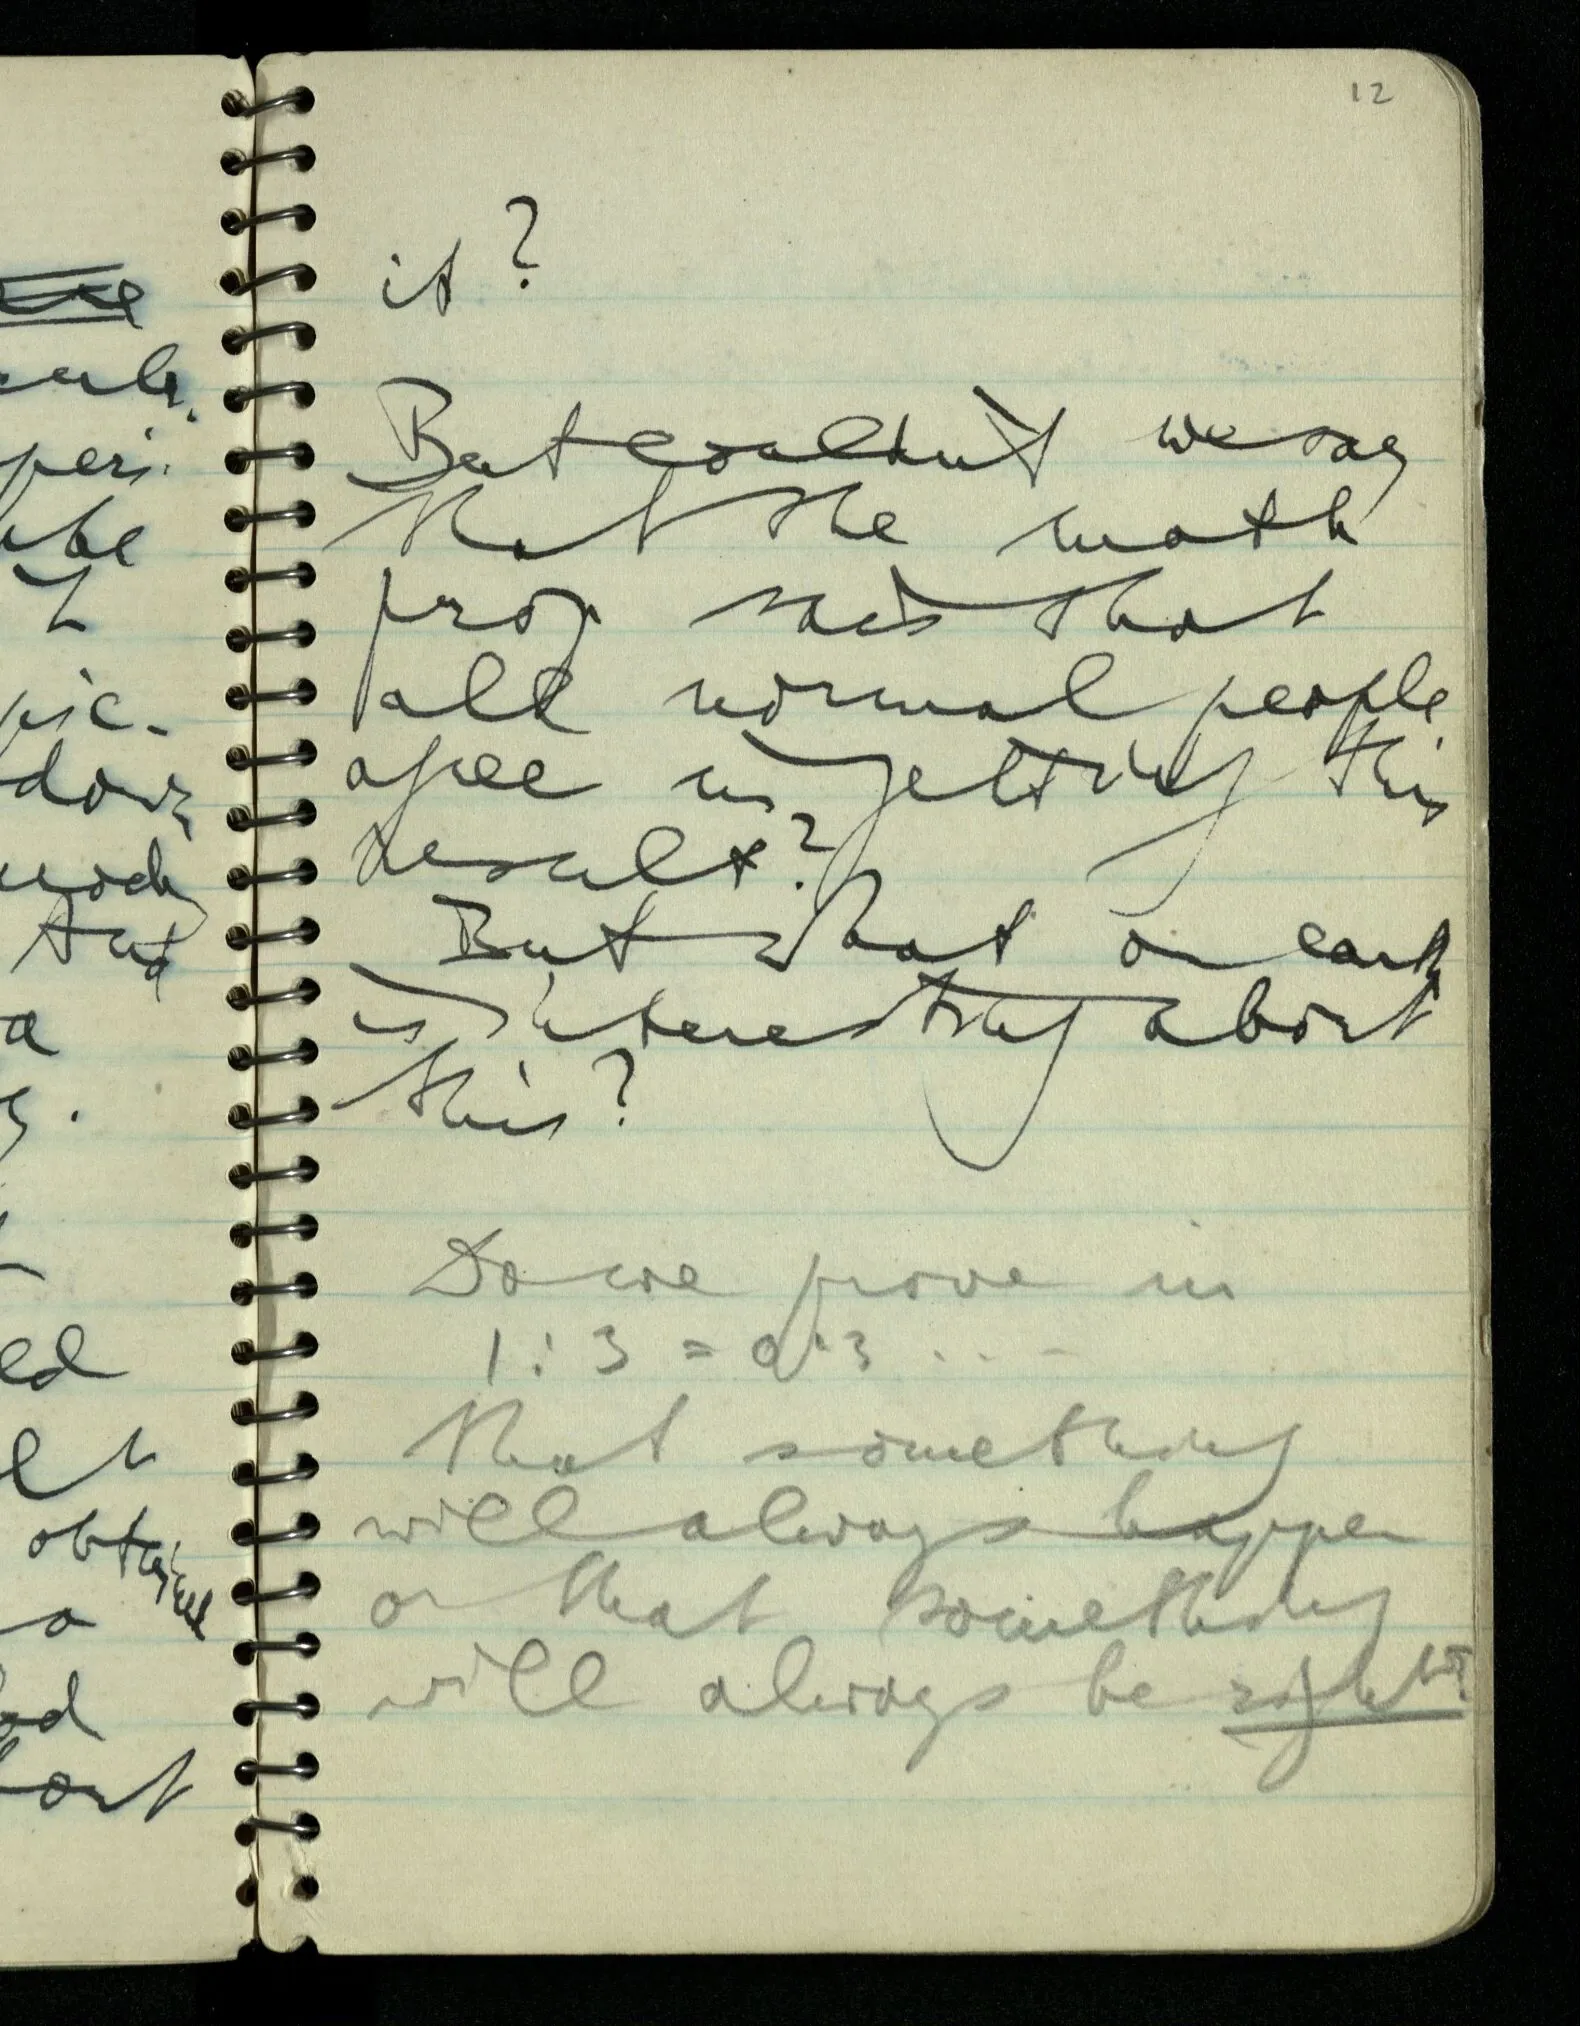 12
it?
But couldn't we say
that the math
prop says that
all normal people
agree in getting this
result?
But what on earth
is interesting about
this?
Do we prove in
1 : 3 = 0·3 . . . -
that something
will always happen
or that something
will always be right?
peri-
pic-
down
And
a
obtained